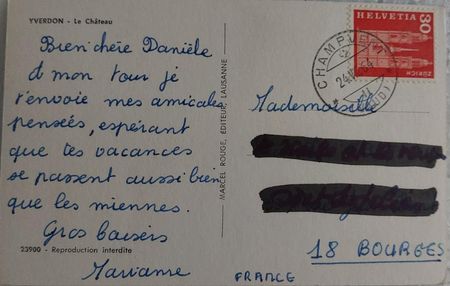 YVERDON - Le Château
Bien chère Danièle
A mon tour je
t'envoie mes amicales
pensées, espérant
que tes vacances
se passent aussi bien
que les miennes.
Gros baisers
Marianne
23900 - Reproduction interdite
MARCEL ROUGE, ÉDITEUR, LAUSANNE
HELVETIA
30
ZÜRICH
CHAMPVENT
(VAUD)
Mademoiselle
18 BOURGES
FRANCE